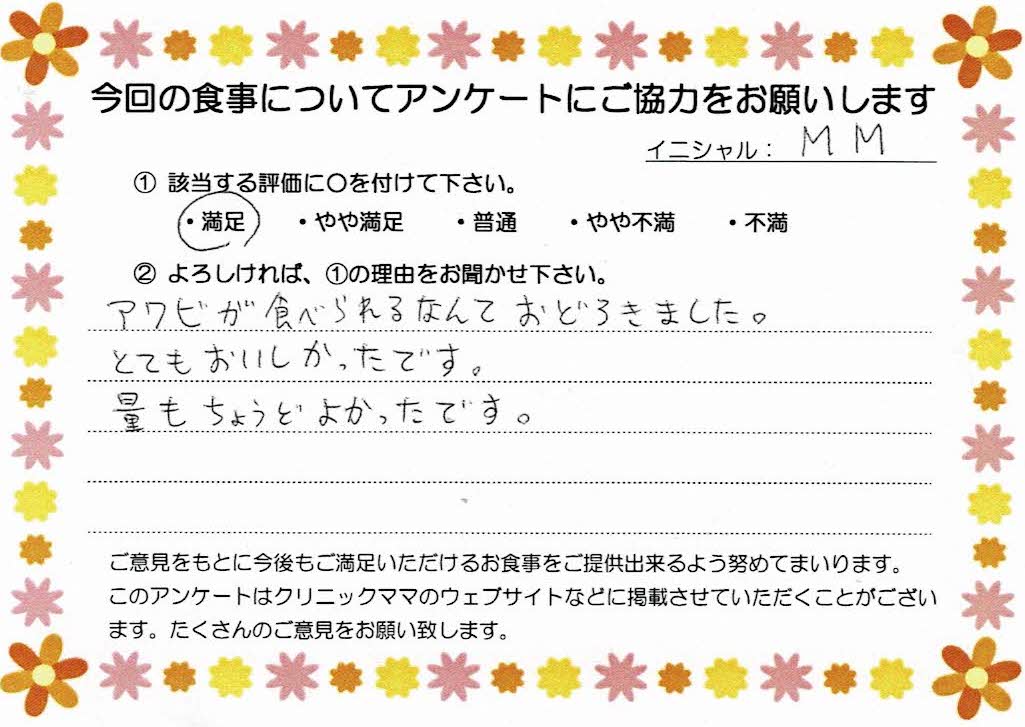 今回の食事についてアンケートにご協力をお願いします
イニシャル： MM
① 該当する評価に〇を付けて下さい。
・満足 ・やや満足 ・普通 ・やや不満 ・不満
② よろしければ、①の理由をお聞かせ下さい。
アワビが食べられるなんておどろきました。
とてもおいしかったです。
量もちょうどよかったです。
ご意見をもとに今後もご満足いただけるお食事をご提供出来るよう努めてまいります。
このアンケートはクリニックママのウェブサイトなどに掲載させていただくことがござい
ます。たくさんのご意見をお願い致します。